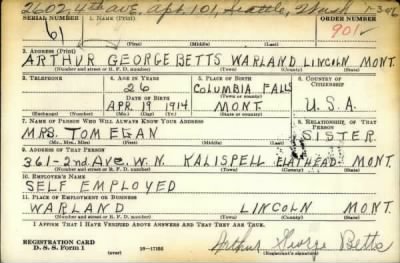 2602, 4th ave, apt 101, Seattle, Wash
SERIAL NUMBER 1. NAME (Print) ORDER NUMBER
61 901
(First) (Middle) (Last)
2. ADDRESS (Print)
ARTHUR GEORGE BETTS WARLAND LINCOLN MONT.
(Number and street or R. F. D. number) (Town) (County) (State)
3. TELEPHONE 4. AGE IN YEARS 5. PLACE OF BIRTH 6. COUNTRY OF CITIZENSHIP
26 COLUMBIA FALLS
DATE OF BIRTH (Town or county)
APR. 19 1914 MONT. U.S.A.
(Exchange) (Number) (Mo.) (Day) (Yr.) (State or country)
7. NAME OF PERSON WHO WILL ALWAYS KNOW YOUR ADDRESS 8. RELATIONSHIP OF THAT PERSON
MRS. TOM EGAN SISTER
(Mr., Mrs., Miss) (First) (Middle) (Last)
9. ADDRESS OF THAT PERSON
361-2nd. Ave. W. N. KALISPELL FLATHEAD MONT.
(Number and street or R. F. D. number) (Town) (County) (State)
10. EMPLOYER'S NAME
SELF EMPLOYED
11. PLACE OF EMPLOYMENT OR BUSINESS
WARLAND LINCOLN MONT.
(Number and street or R. F. D. number) (Town) (County) (State)
I AFFIRM THAT I HAVE VERIFIED ABOVE ANSWERS AND THAT THEY ARE TRUE.
REGISTRATION CARD
D. S. S. Form 1 (over) 16-17105 Arthur George Betts